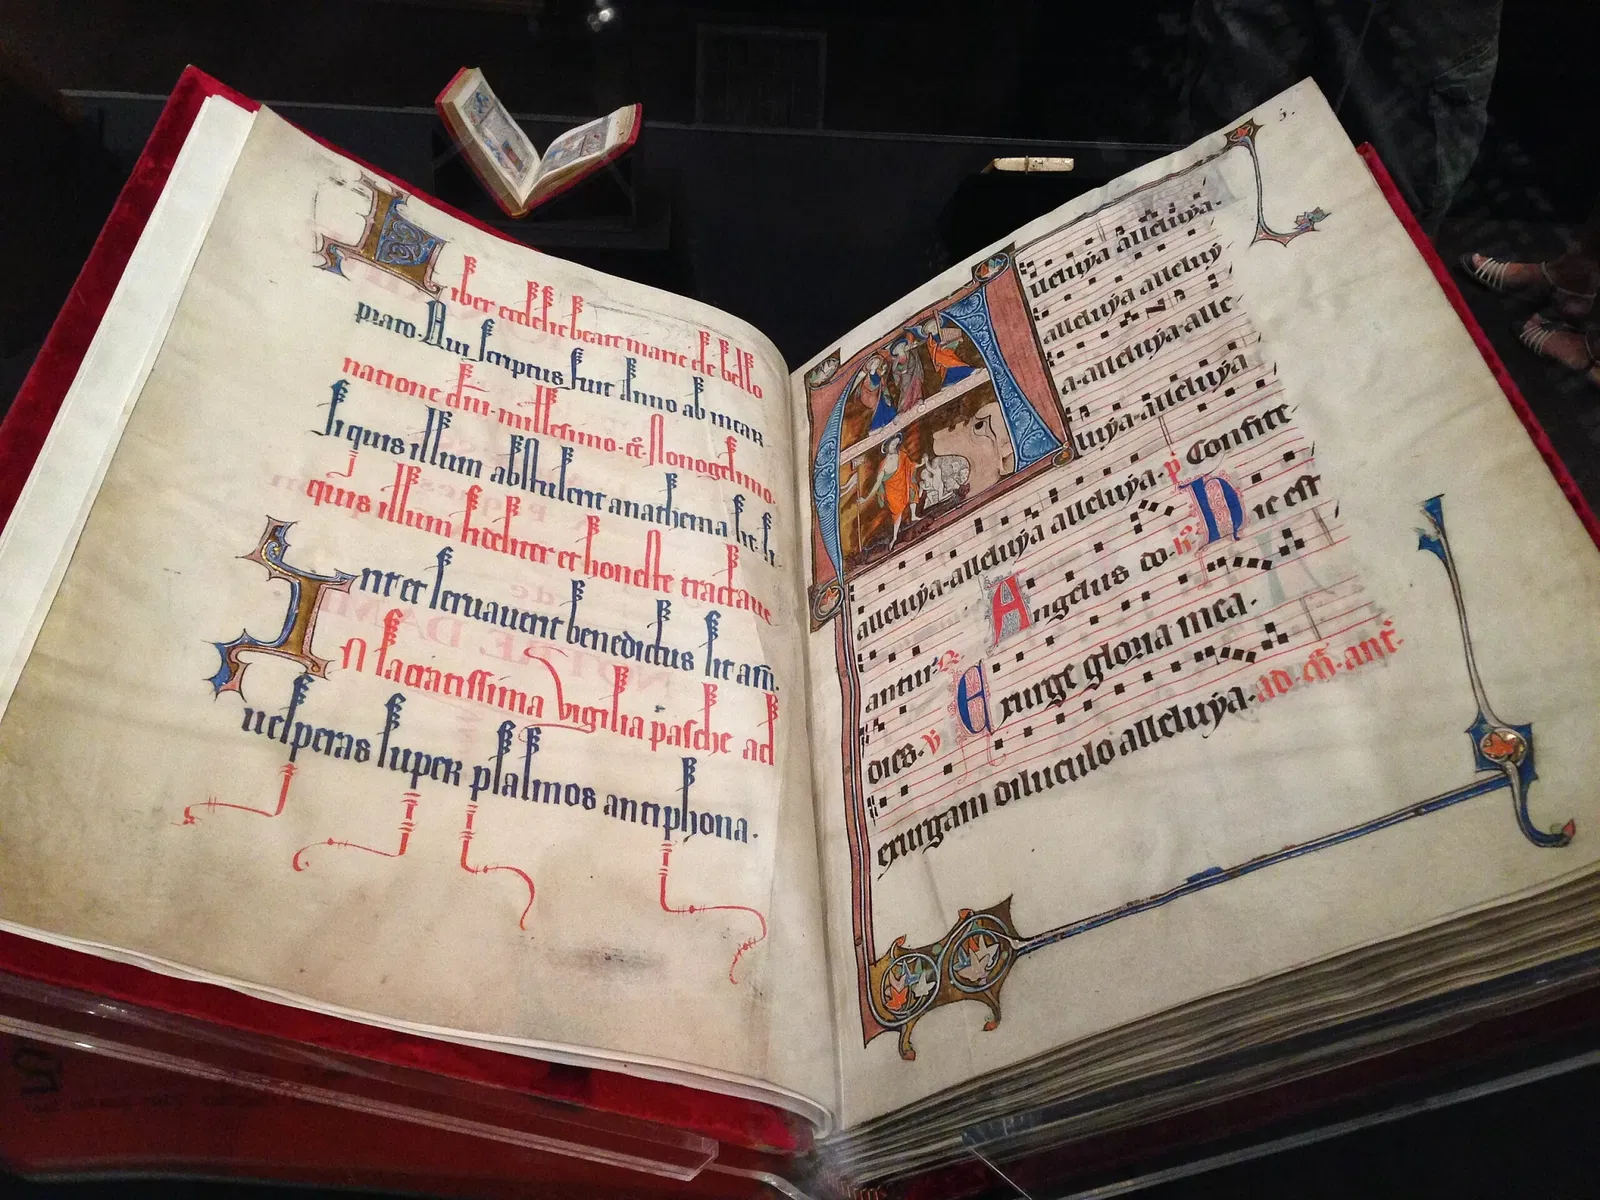 Liber ecclesie beate marie de bello
prato. Qui scriptus fuit Anno ab incar
natione dni. millesimo. cc. Nonogesimo.
Si quis illum abstulerit anathema sit. Si
quis illum fideliter et honeste tractaue
rit et seruauerit benedictus sit am.
In sacratissima vigilia pasche ad
uesperas super psalmos antiphona.
5.
Alleluya alleluya.
alleluya alleluy
a. alleluya. alle
luya. alleluya
alleluya. alleluya alleluya. p Confite
antur. Angelus do. Hic est
dies. v Exurge gloria mea.
exurgam diluculo alleluya. ad